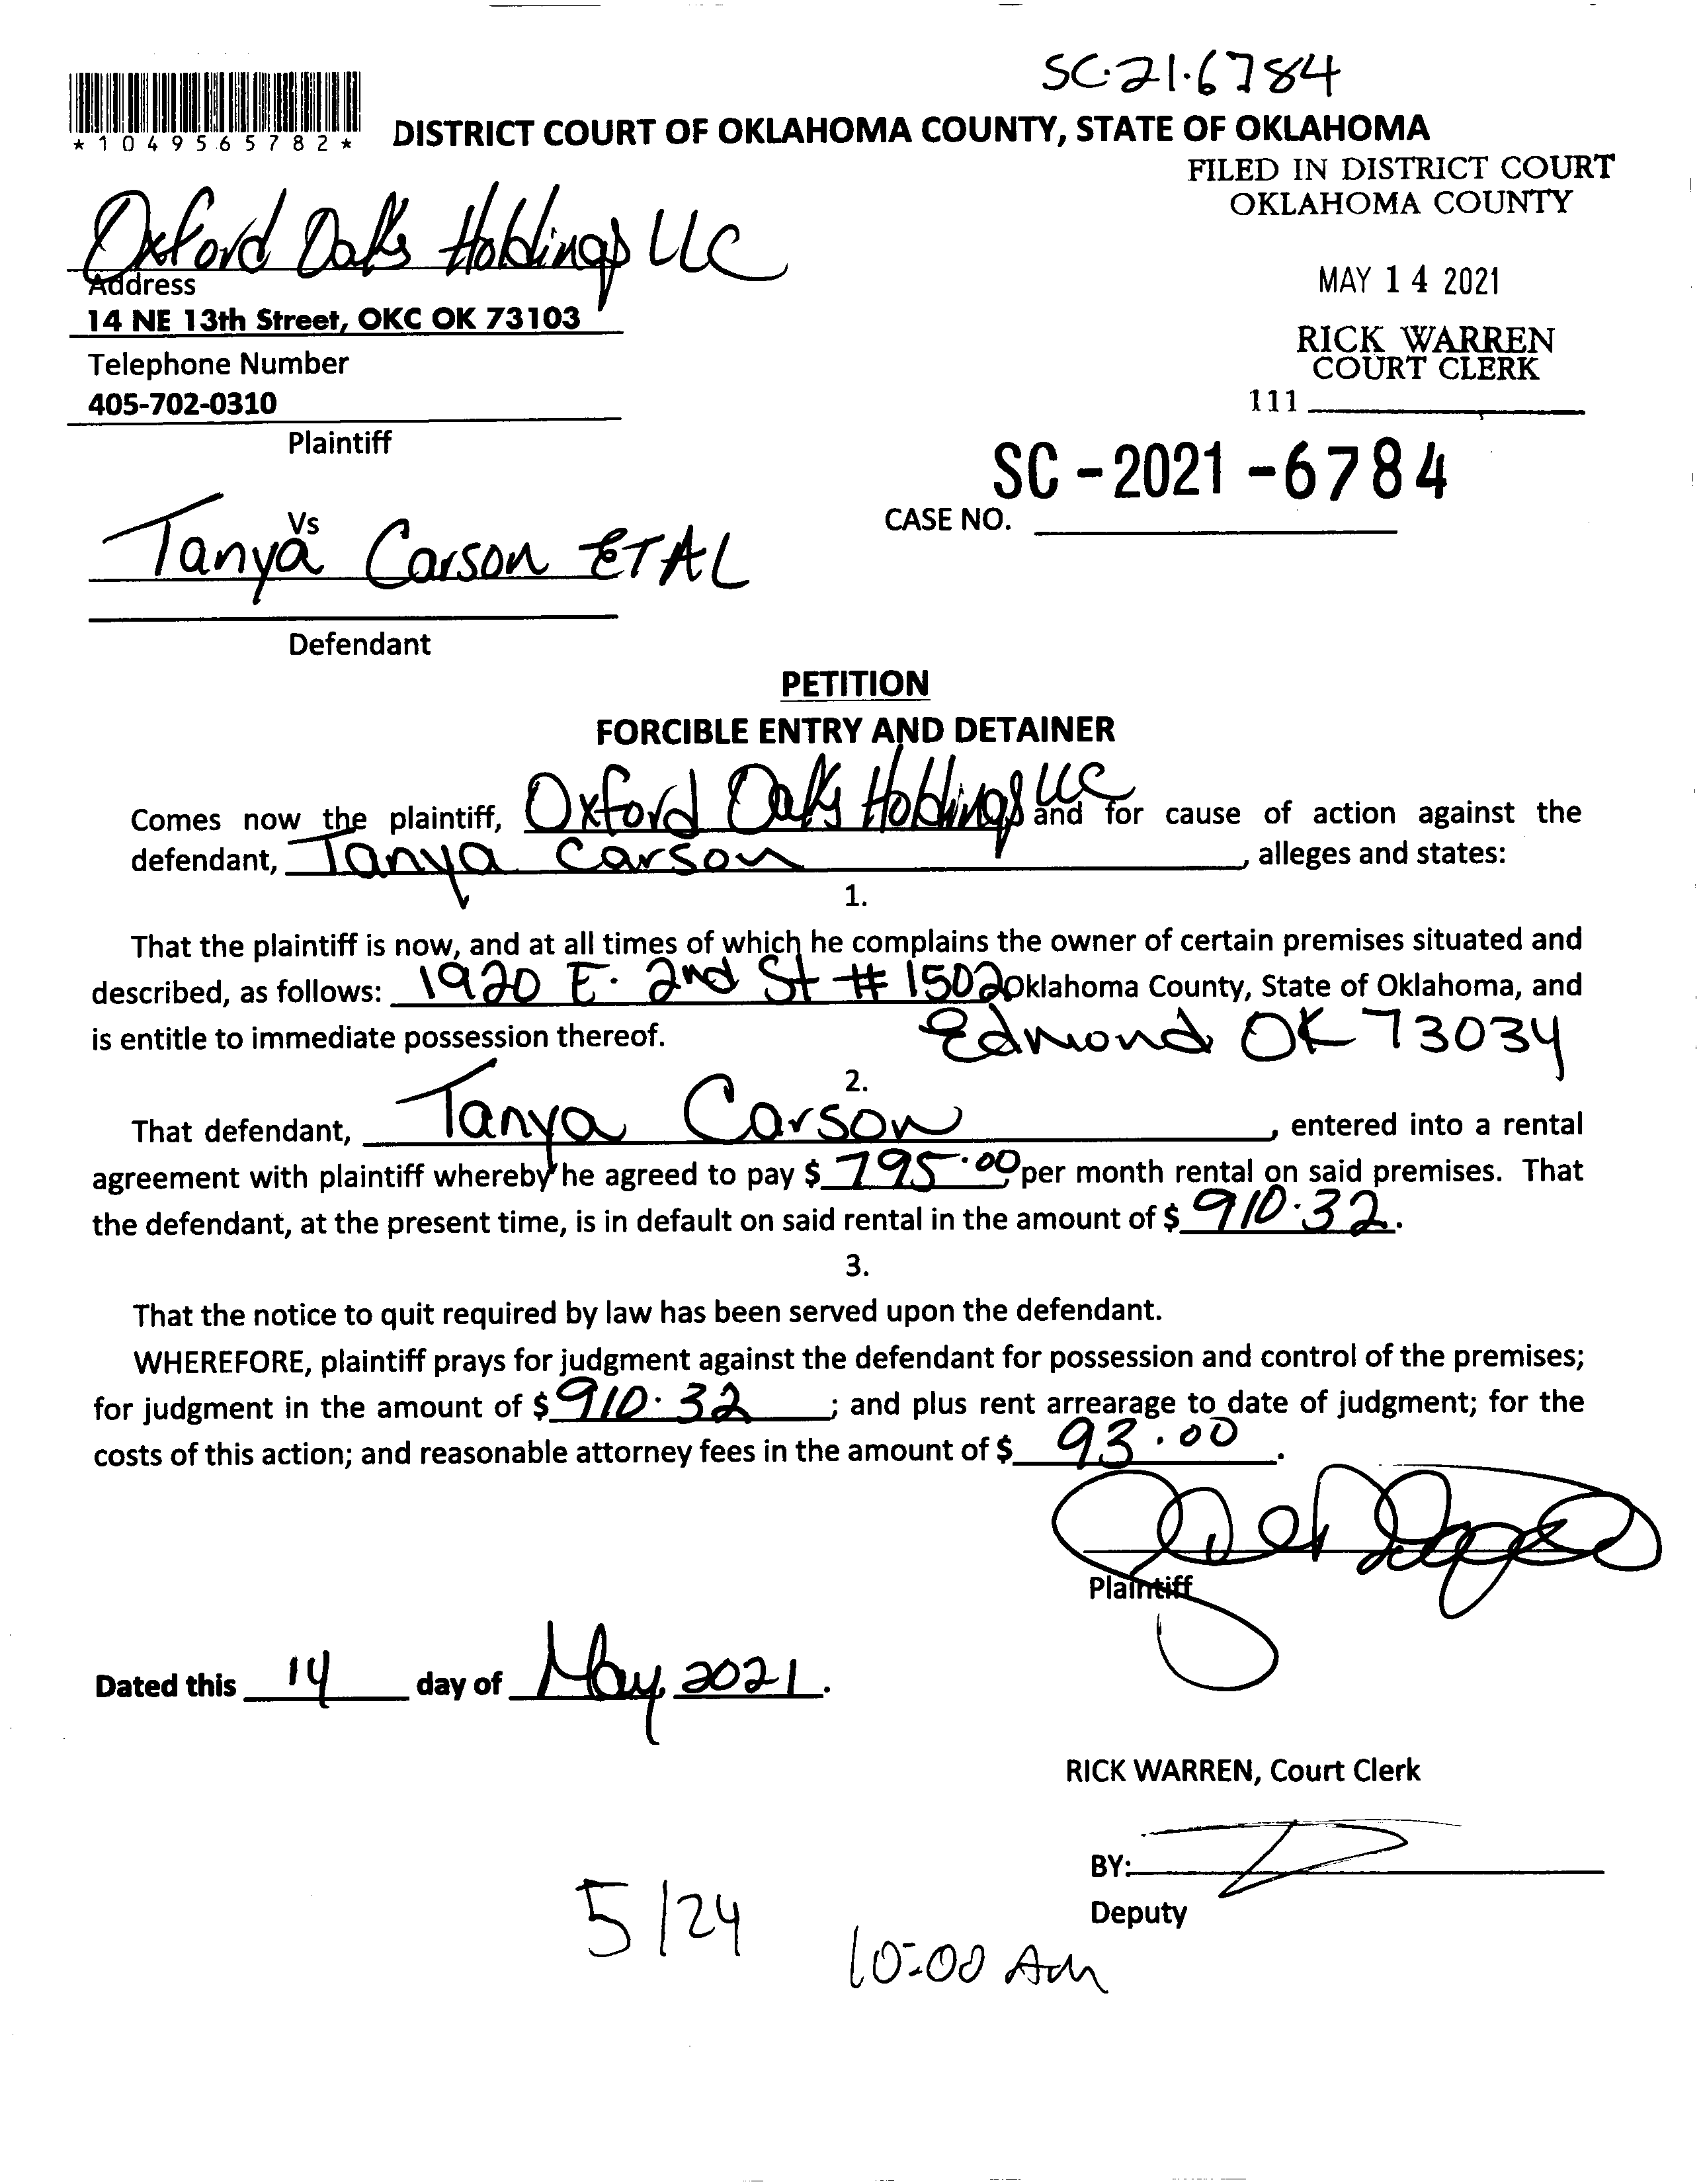 SC.21.6784
*1049565782*
DISTRICT COURT OF OKLAHOMA COUNTY, STATE OF OKLAHOMA
FILED IN DISTRICT COURT
OKLAHOMA COUNTY
Oxford Oaks Holdings LLC
Address
14 NE 13th Street, OKC OK 73103
MAY 14 2021
Telephone Number
405-702-0310
RICK WARREN
COURT CLERK
111
Plaintiff
SC-2021-6784
CASE NO.
Vs
Tanya Carson ETAL
Defendant
PETITION
FORCIBLE ENTRY AND DETAINER
Comes now the plaintiff, Oxford Oaks Holdings LLC and for cause of action against the
defendant, Tanya Carson, alleges and states:
1.
That the plaintiff is now, and at all times of which he complains the owner of certain premises situated and
described, as follows: 1920 E. 2nd St # 1502 Oklahoma County, State of Oklahoma, and
is entitle to immediate possession thereof. Edmond OK 73034
2.
That defendant, Tanya Carson, entered into a rental
agreement with plaintiff whereby he agreed to pay $ 795.00, per month rental on said premises. That
the defendant, at the present time, is in default on said rental in the amount of $ 910.32.
3.
That the notice to quit required by law has been served upon the defendant.
WHEREFORE, plaintiff prays for judgment against the defendant for possession and control of the premises;
for judgment in the amount of $ 910.32; and plus rent arrearage to date of judgment; for the
costs of this action; and reasonable attorney fees in the amount of $ 93.00.
Plaintiff
Dated this 14 day of May 2021.
RICK WARREN, Court Clerk
BY:
Deputy
5/24
10:00 Am